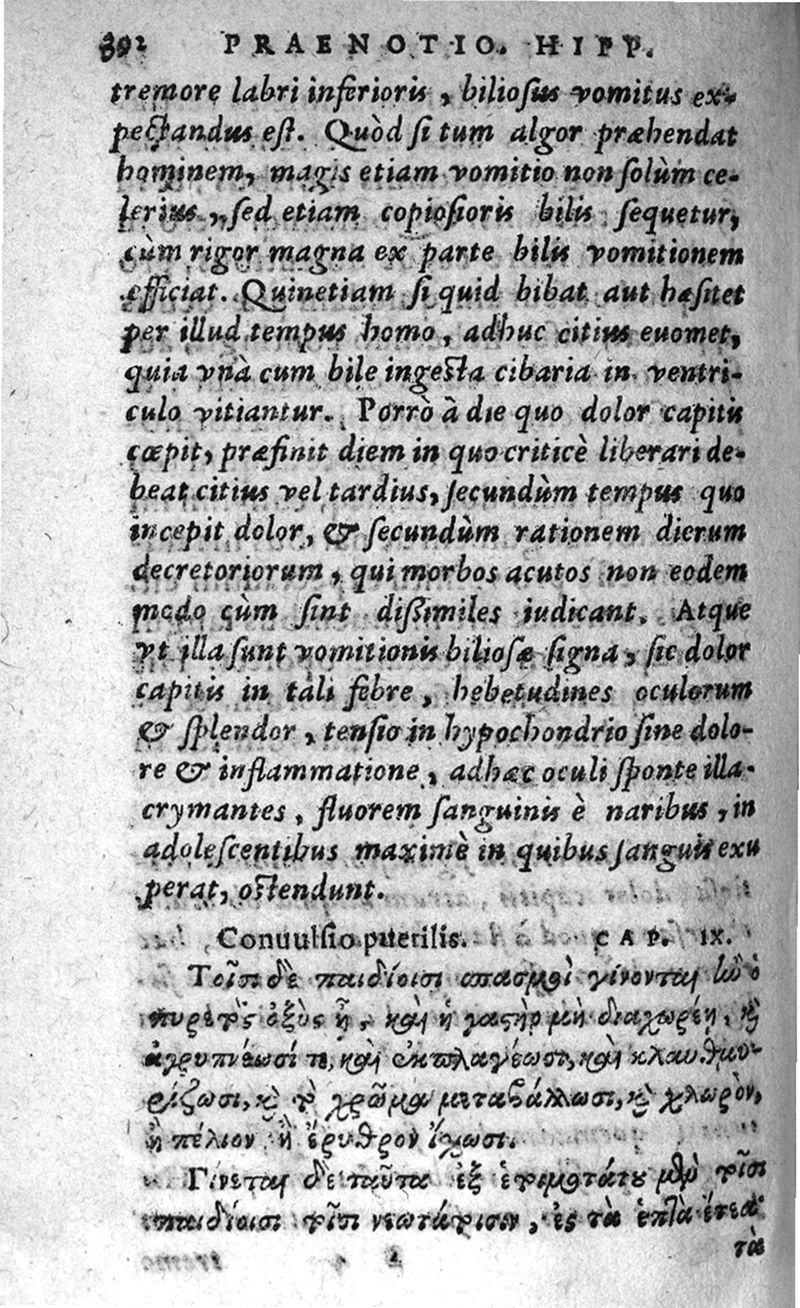 392 PRAENOTIO. HIPP.
tremore labri inferioris, biliosus vomitus ex-
pectandus est. Quòd si tum algor præhendat
hominem, magis etiam vomitio non solùm ce-
lerius, sed etiam copiosioris bilis sequetur,
cùm rigor magna ex parte bilis vomitionem
efficiat. Quinetiam si quid bibat aut hæsitet
per illud tempus homo, adhuc citius euomet,
quia vnà cum bile ingesta cibaria in ventri-
culo vitiantur. Porrò à die quo dolor capitis
cœpit, præfinit diem in quo criticè liberari de-
beat citius vel tardius, secundùm tempus quo
incepit dolor, & secundùm rationem dierum
decretoriorum, qui morbos acutos non eodem
modo cùm sint dissimiles iudicant. Atque
vt illa sunt vomitionis biliosæ signa, sic dolor
capitis in tali febre, hebetudines oculorum
& splendor, tensio in hypochondrio sine dolo-
re & inflammatione, adhæc oculi sponte illa-
crymantes, fluorem sanguinis è naribus, in
adolescentibus maximè in quibus sanguis exu
perat, ostendunt.
Conuulsio puerilis. CAP. IX.
Τοῖσι δὲ παιδίοισι σπασμοὶ γίνονται ἢν ὁ
πυρετὸς ὀξὺς ᾖ, καὶ ἡ γαστὴρ μὴ διαχωρέῃ, καὶ
ἀγρυπνέωσί τε, καὶ ἐκπλαγέωσι, καὶ κλαυθμυ-
ρίζωσι, καὶ τὸ χρῶμα μεταβάλλωσι, καὶ χλωρὸν,
ἢ πέλιον ἢ ἔρυθρον ἴχωσι.
Γίνεται δὲ ταῦτα ἐξ ἑτοιμοτάτου μὲν τοῖσι
παιδίοισι τοῖσι νεωτάτοισιν, ἐς τὰ ἑπτὰ ἔτεα·
τὰ